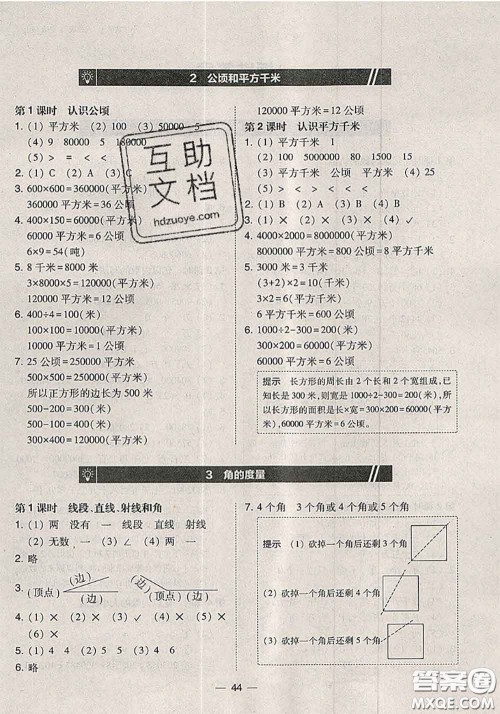 2 公顷和平方千米
第1课时 认识公顷
1. (1) 平方米 (2) 100 (3) 50000 5
(4) 9 80000 5 180000
(5) > = < <
2. (1) C (2) A (3) C
3. 600×600=360000(平方米)
360000平方米=36公顷
4. 400×150=60000(平方米)
60000平方米=6公顷
6×9=54(吨)
5. 8千米=8000米
3×8000×5=120000(平方米)
120000平方米=12公顷
6. 400÷4=100(米)
100×100=10000(平方米)
10000平方米=1公顷
7. 25公顷=250000平方米
500×500=250000(平方米)
所以正方形的边长为500米
500-200=300(米)
500-100=400(米)
300×400=120000(平方米)
120000平方米=12公顷
第2课时 认识平方千米
1. (1) 平方千米 1
(2) 100 1000000
(3) 平方千米 公顷 平方米 44
(5) > < = <
2. (1) B (2) B (3) A
3. (1) × (2) × (3) × (4) ✓
4. 4000×2000=8000000(平方米)
8000000平方米=800公顷=8平方千米
5. 3000米=3千米
(3+2)×2=10(千米)
3×2=6(平方千米)
6平方千米=600公顷
6. 1000÷2-300=200(米)
300×200=60000(平方米)
60000平方米=6公顷
提示 长方形的周长由2个长和2个宽组成,已
知长是300米,则宽是1000÷2-300=200(米),所
以长方形的面积是长×宽=300×200=60000(平方
米),60000平方米=6公顷。
3 角的度量
第1课时 线段、直线、射线和角
1. (1) 两 没有 一 线段 直线 射线
(2) 无数 一 (3) 一 两
2. 略
3. (顶点) (边) (边) (边) (顶点) (边)
4. (1) × (2) × (3) ✓ (4) × (5) ×
(6) ×
5.
6. 略
7. 4个角 3个角或4个角或5个角
提示 (1) 砍掉一个角后还剩3个角
(2) 砍掉一个角后还剩4个角
(3) 砍掉一个角后还剩5个角
44
互助
文档
hdzuoye.com
答案圈
MXQE.COM